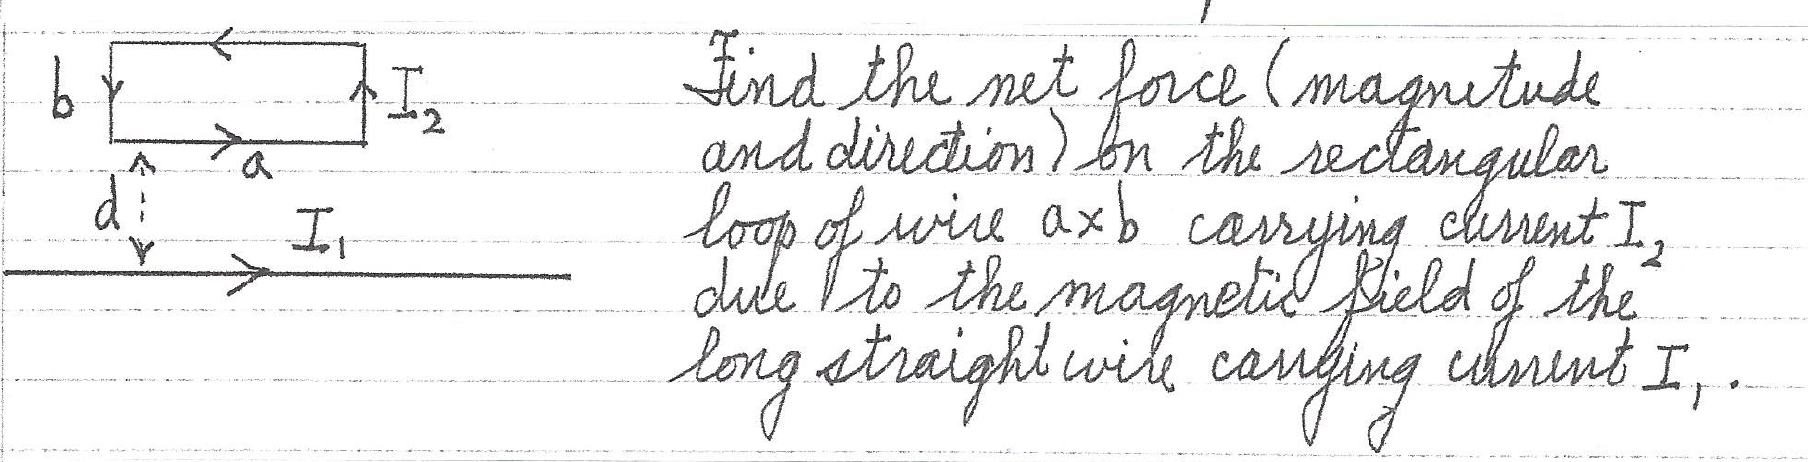 b
I₂
a
d
I₁
Find the net force (magnitude
and direction) on the rectangular
loop of wire a×b carrying current I₂
due to the magnetic field of the
long straight wire carrying current I₁.